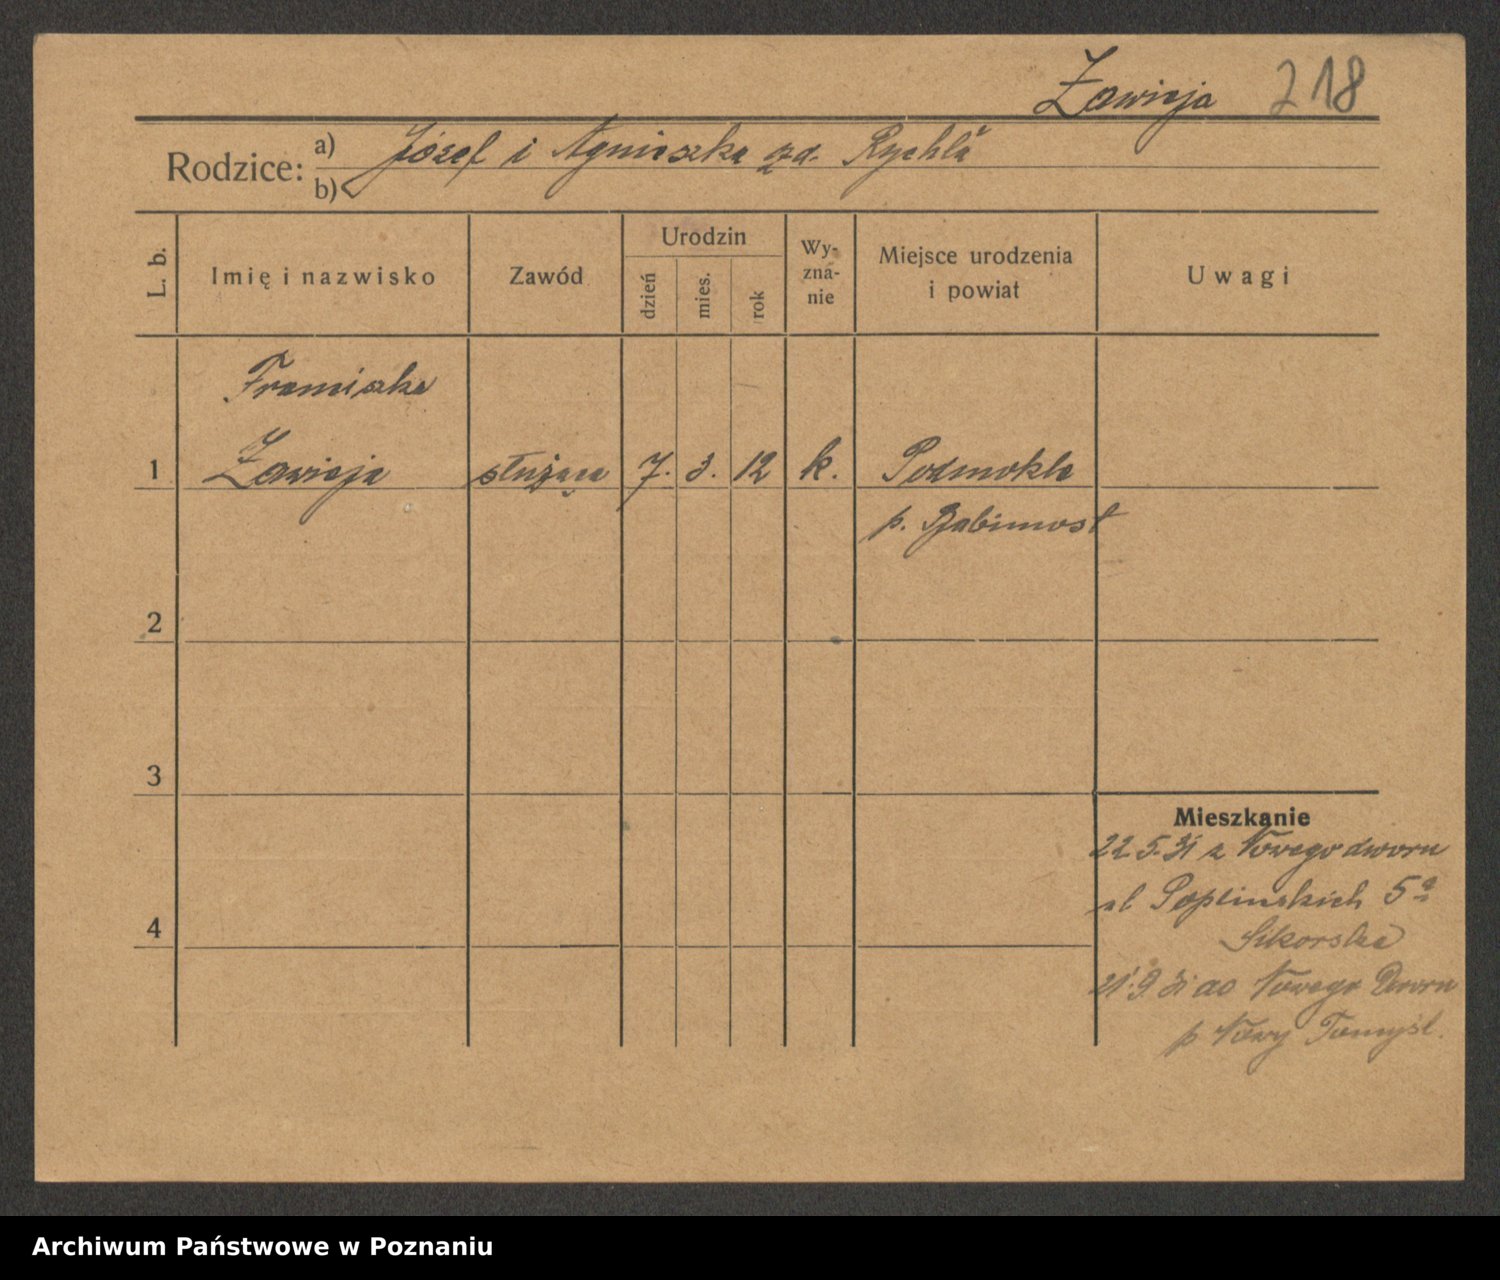 Zawieja 218
Rodzice: a) Józef i Agnieszka zd. Rychła
b)
L. b.
Imię i nazwisko
Zawód
Urodzin
dzień
mies.
rok
Wy-
zna-
nie
Miejsce urodzenia
i powiat
Uwagi
Franciszka
1 Zawieja służąca 7. 3. 12 k. Podmokle
p. Babimost
2
3
4
Mieszkanie
22.5.31 z Nowego dworu
ul Poplinskich 5a
Sikorska
21.9.31 do Nowego Dworu
p Nowy Tomyśl.
Archiwum Państwowe w Poznaniu